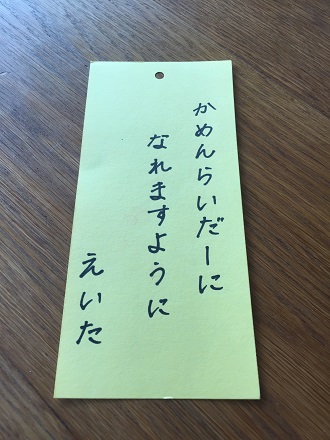 かめんらいだーに
なれますように
えいた